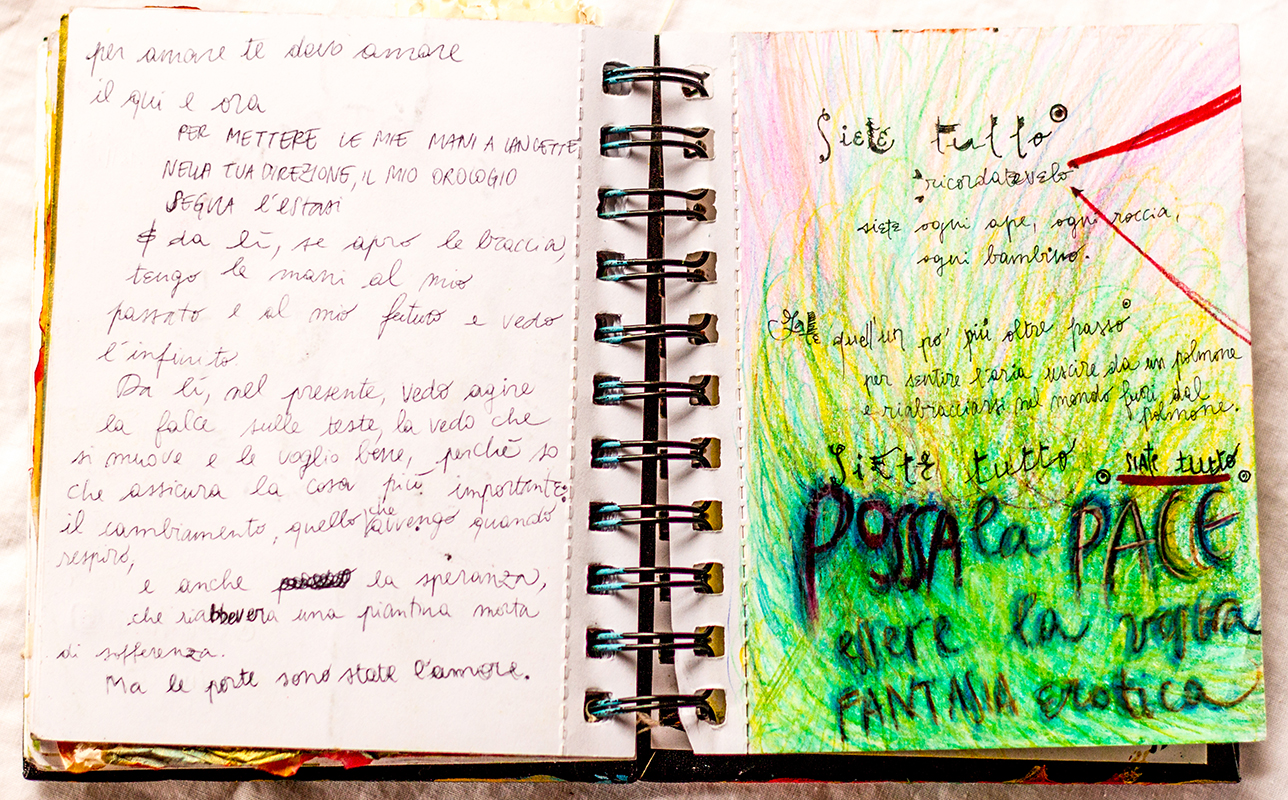 per amare te devo amare
il qui e ora
PER METTERE LE MIE MANI A LANCETTE
NELLA TUA DIREZIONE, IL MIO OROLOGIO
SEGNA l'ESTASI
E da lì, se apro le braccia,
tengo le mani al mio
passato e al mio futuro e vedo
l'infinito.
Da lì, nel presente, vedo agire
la falce sulle teste, la vedo che
si muove e le voglio bene, perché so
che assicura la cosa più importante:
il cambiamento, quello che avvengo quando
respiro,
e anche la speranza,
che riabbevera una piantina morta
di sofferenza.
Ma le porte sono state l'amore.
Siete tutto
ricordatevelo
siete ogni ape, ogni roccia,
ogni bambino.
quell'un po' più oltre passo
per sentire l'aria uscire da un polmone
e riabbracciarsi nel mondo fuori dal
polmone.
Siete tutto siate tutto
POSSA la PACE
essere la vostra
FANTASIA erotica